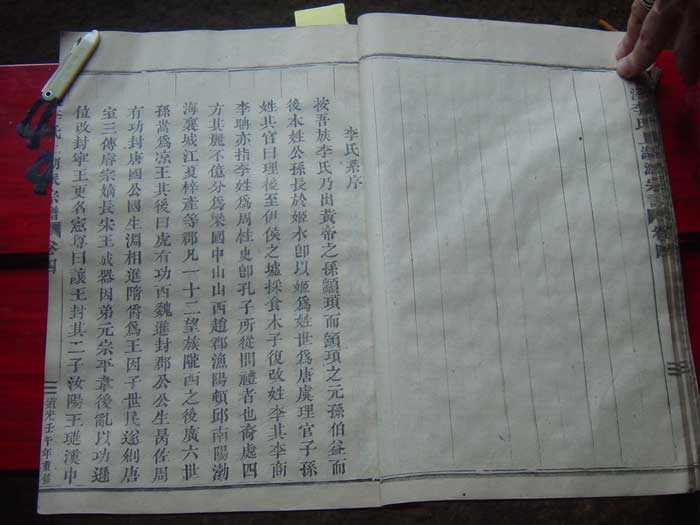 李氏系序
按吾族李氏乃出黃帝之孫顓瑣而顓瑣之元孫伯益而
後本姓公孫長於姬水卽以姬爲姓世爲唐虞理官子孫
姓其官曰理後至伊侯之墟採食木子復改姓李其李商
李聃亦指李姓爲周柱史卽孔子所從問禮者也裔處四
方其麗不億分爲梁國中山山西趙郡漁陽頓邱南陽渤
海襄城江夏梓產等郡凡一十二望族隴西之後廣六世
孫暠爲凉王其後曰虎有功西魏進封郡公公生昺佐周
有功封唐國公國生淵相進隋爵爲王因子世民遂剏唐
室三傳睿宗嫡長宋王成器因弟元宗平韋後亂以功遜
位改封寧王更名憲尊曰讓王封其二子汝陽王璡漢中
氏宗譜 卷四
道光壬午年重修
李氏